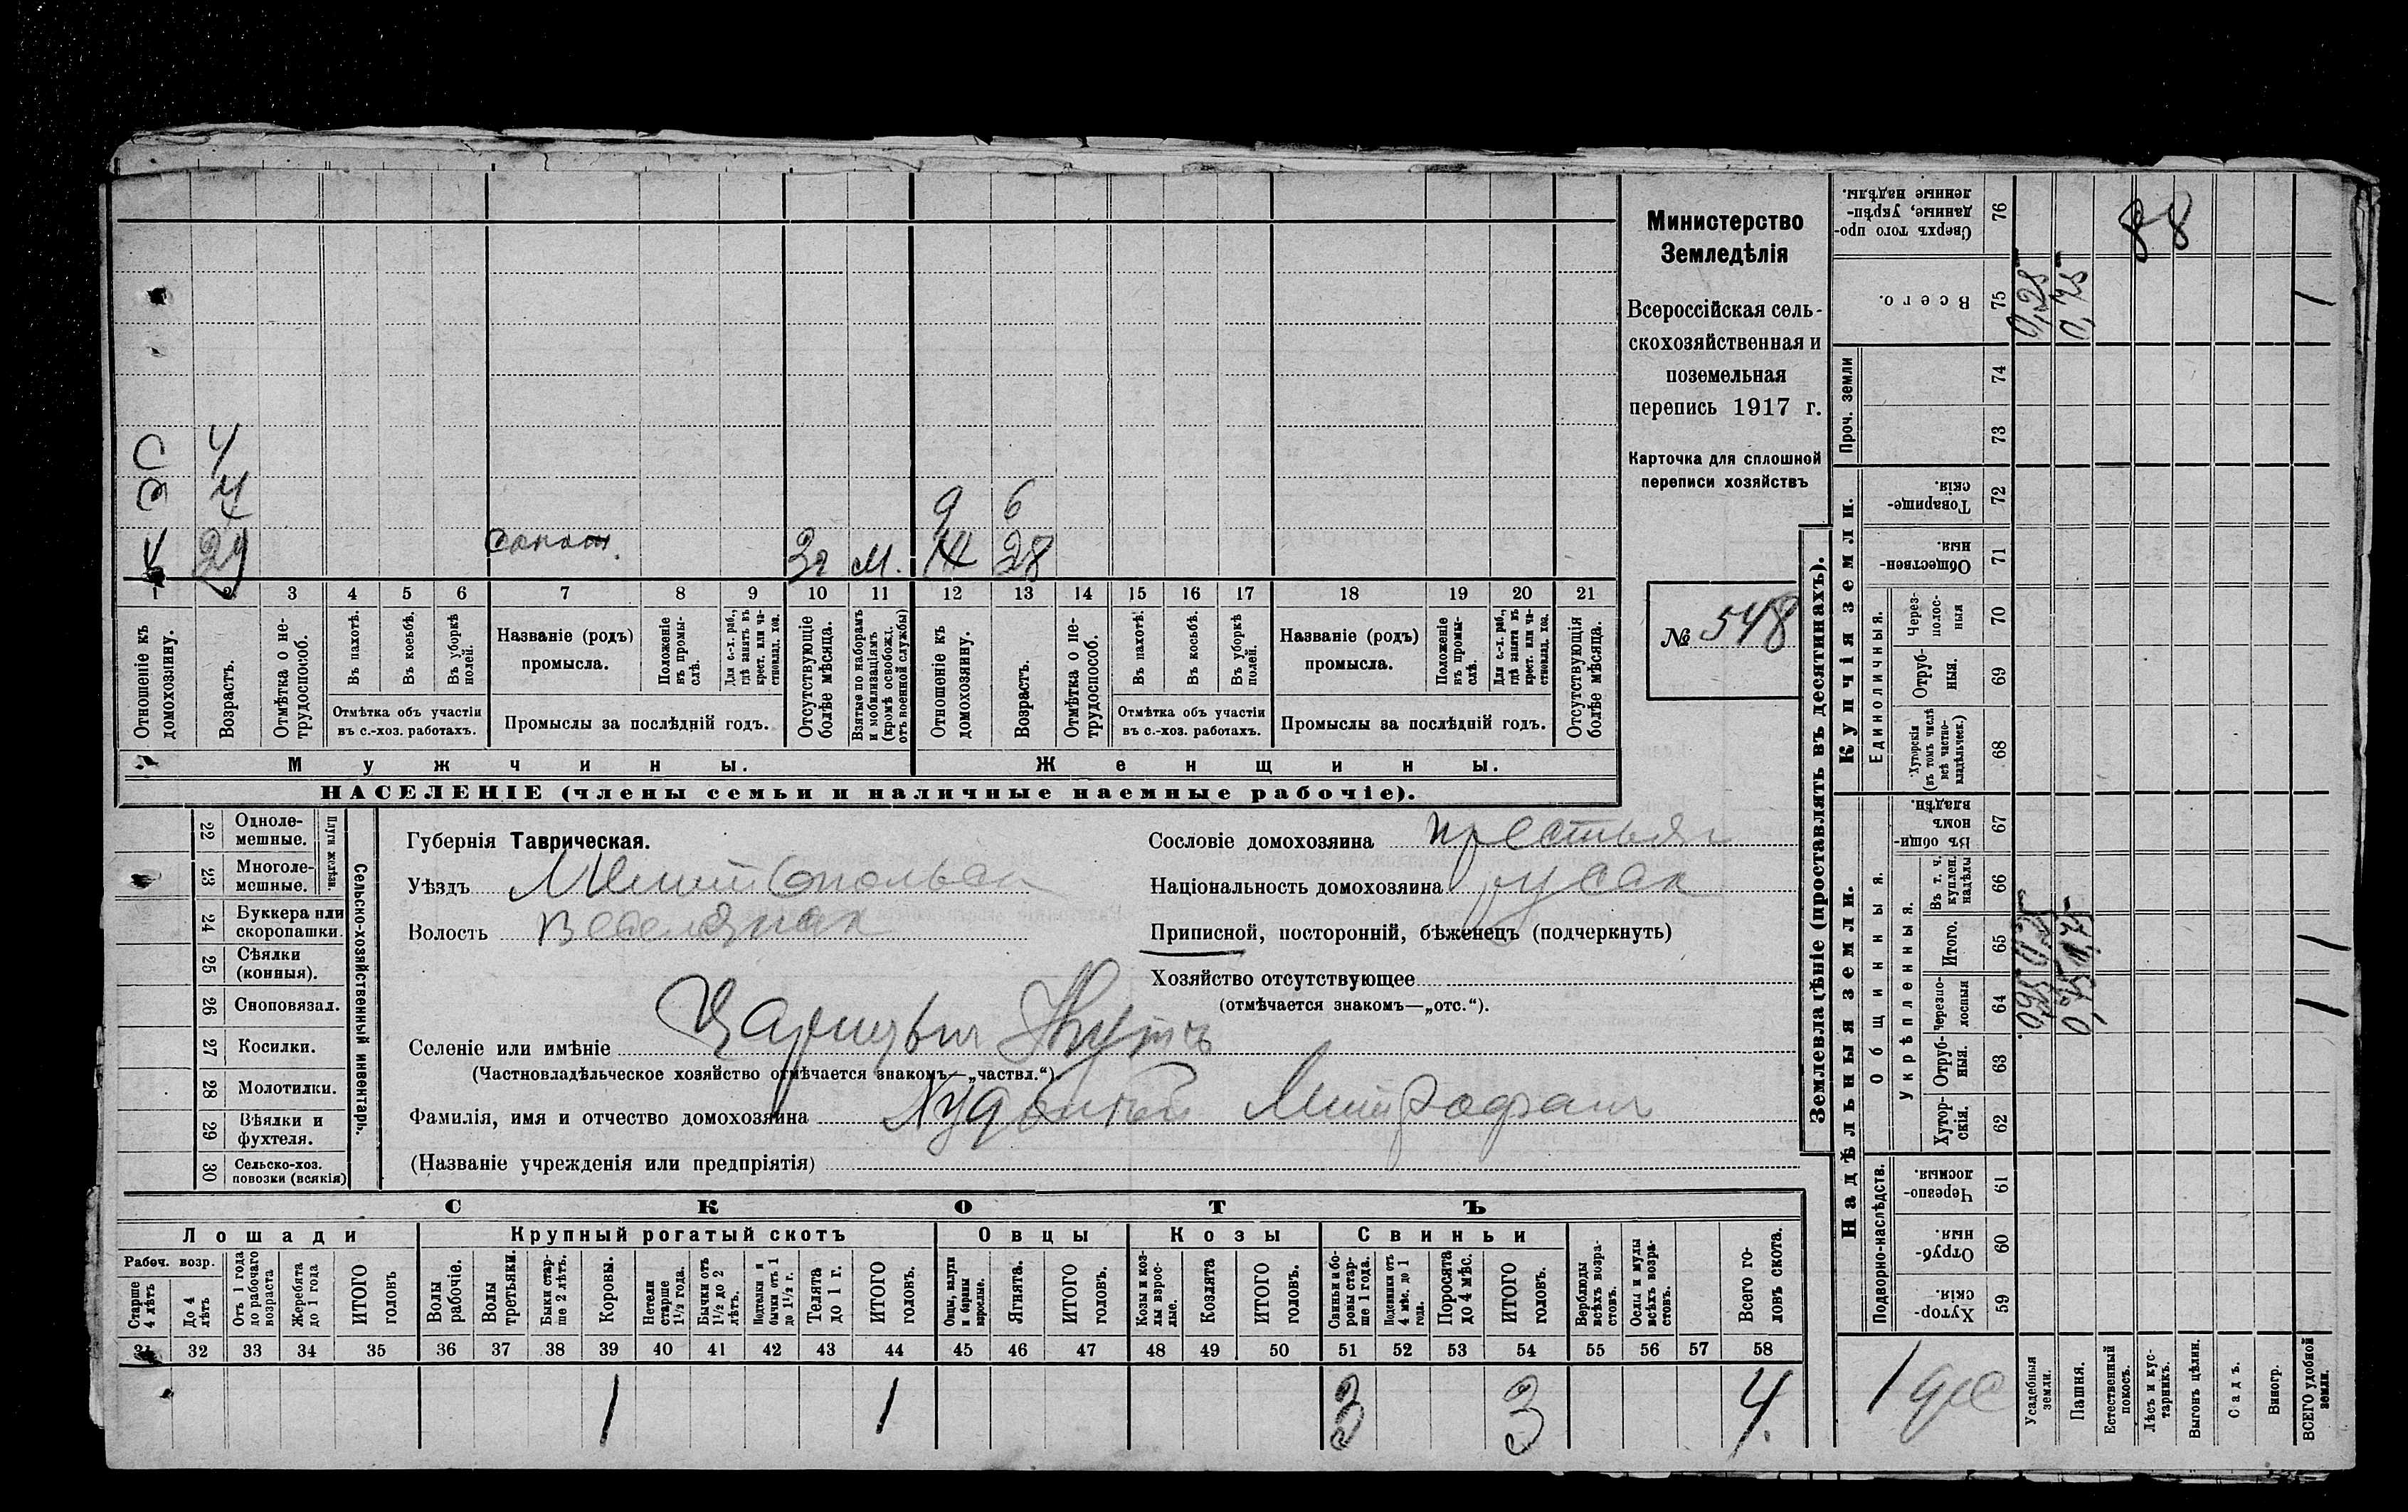 Министерство
Земледѣлія
Всероссійская сель-
скохозяйственная и
поземельная
перепись 1917 г.
Карточка для сплошной
переписи хозяйствъ
№ 548
С 4
С 4
9 6
24 Зг М. Ж 28
1 2 3 4 5 6 7 8 9 10 11 12 13 14 15 16 17 18 19 20 21
Отношеніе къ домохозяину.
Возрастъ.
Отмѣтка о не-трудоспособ.
Въ пахотѣ.
Въ косьбѣ.
Въ уборкѣ полей.
Отмѣтка объ участіи
въ с.-хоз. работахъ.
Названіе (родъ)
промысла.
Положеніе въ промы-слѣ.
Для с.-х. раб., гдѣ занятъ въ крест. или ча-стновлад. хоз.
Промыслы за послѣдній годъ.
Отсутствующіе болѣе мѣсяца.
Взятые по наборамъ и мобилизаціямъ (кромѣ освобожд. отъ военной службы)
Отношеніе къ домохозяину.
Возрастъ.
Отмѣтка о не-трудоспособ.
Въ пахотѣ.
Въ косьбѣ.
Въ уборкѣ полей.
Отмѣтка объ участіи
въ с.-хоз. работахъ.
Названіе (родъ)
промысла.
Положеніе въ промы-слѣ.
Для с.-х. раб., гдѣ занята въ крест. или ча-стновлад. хоз.
Промыслы за послѣдній годъ.
Отсутствующія болѣе мѣсяца.
Мужчины. Женщины.
НАСЕЛЕНІЕ (члены семьи и наличные наемные рабочіе).
22 Одноле-мешные.
23 Многоле-мешные.
Плуги желѣзн.
24 Буккера или скоропашки.
25 Сѣялки (конныя).
26 Сноповязал.
27 Косилки.
28 Молотилки.
29 Вѣялки и фухтеля.
30 Сельско-хоз. повозки (всякія)
Сельско-хозяйственный инвентарь.
Губернія Таврическая.
Уѣздъ Мелитопольск
Волость Веселянск
Сословіе домохозяина крестьян
Національность домохозяина русск
Приписной, посторонній, бѣженецъ (подчеркнуть)
Хозяйство отсутствующее
(отмѣчается знакомъ—„отс.“).
Селеніе или имѣніе Царицын Кутъ
(Частновладѣльческое хозяйство отмѣчается знакомъ—„частвл.“).
Фамилія, имя и отчество домохозяина Митрофан
(Названіе учрежденія или предпріятія)
СКОТЪ
Лошади Крупный рогатый скотъ Овцы Козы Свиньи
Рабоч. возр.
Старше 4 лѣтъ
До 4 лѣтъ
Отъ 1 года до рабочаго возраста
Жеребята до 1 года
ИТОГО головъ
Волы рабочіе.
Волы третьяки.
Быки стар-ше 2 лѣтъ.
Коровы.
Нетели старше 1½ года.
Бычки отъ 1½ до 2 лѣтъ.
Подтелки и бычки отъ 1 до 1½ г.
Телята до 1 г.
ИТОГО головъ.
Овцы, валухи и бараны взрослые.
Ягнята.
ИТОГО головъ.
Козы и коз-лы взрос-лые.
Козлята
ИТОГО головъ.
Свиньи и бо-ровы стар-ше 1 года.
Подсвинки отъ 4 мѣс. до 1 года.
Поросята до 4 мѣс.
ИТОГО головъ.
Верблюды всѣхъ возра-стовъ.
Ослы и мулы всѣхъ возра-стовъ.
Всего го-ловъ скота.
31 32 33 34 35 36 37 38 39 40 41 42 43 44 45 46 47 48 49 50 51 52 53 54 55 56 57 58
1 1 3 3 4.
Землевладѣніе (проставлять въ десятинахъ).
Сверхъ того про-данные, укрѣп-ленные надѣлы. 76
88
Всего. 75 0,25 0,75 1
Проч. земли 74 73
Купчія земли.
Товарище-скія. 72
Обществен-ныя. 71
Единоличныя.
Через-полос-ныя 70
Отруб-ныя. 69
Хуторскія (въ томъ числѣ всѣ частно-владѣльческ.) 68
Надѣльныя земли.
Общинныя.
Въ общи-номъ владѣн. 67
Укрѣпленныя.
Въ т. ч. куплен. надѣлы 66
Итого. 65 1
Черезпо-лосныя 64 1
Отруб-ныя. 63
Хутор-скія. 62
Подворно-наслѣдств.
Черезпо-лосныя 61
Отруб-ныя. 60
Хутор-скія. 59
1 дес
Усадебныя земли.
Пашня.
Естественный покосъ.
Лѣсъ и кус-тарникъ.
Выгонъ цѣлин.
Садъ.
Виногр.
ВСЕГО удобной земли.